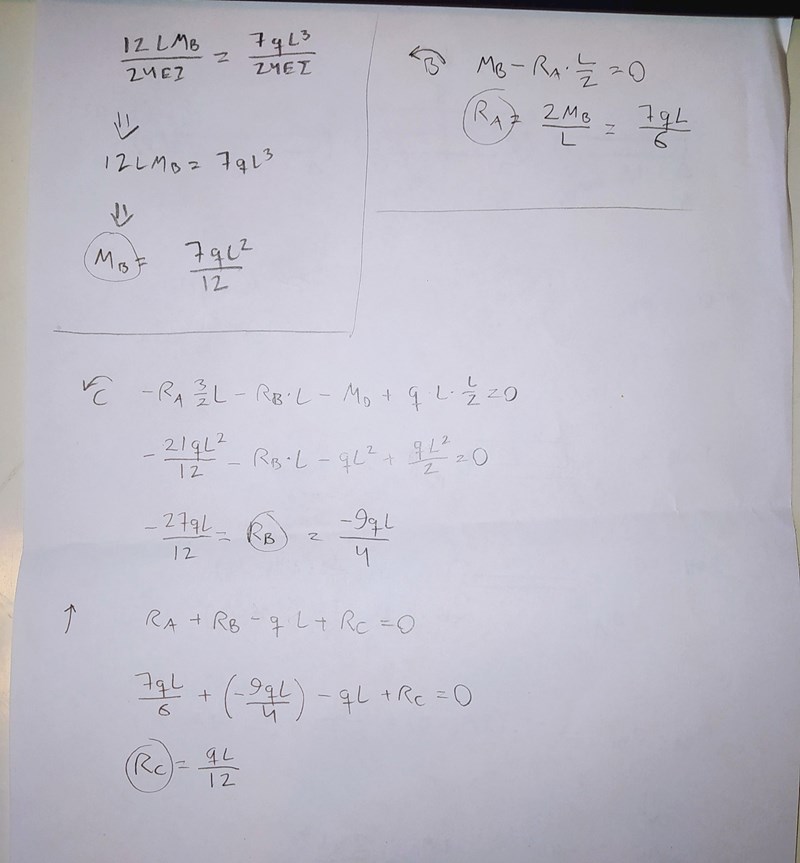 12LM_B/24EI = 7qL³/24EI
⇓
12LM_B = 7qL³
⇓
M_B = 7qL²/12
B M_B - R_A · L/2 = 0
R_A = 2M_B/L = 7qL/6
C -R_A 3/2 L - R_B · L - M_D + q L · L/2 = 0
-21qL²/12 - R_B · L - qL² + qL²/2 = 0
-27qL/12 = R_B = -9qL/4
↑ R_A + R_B - q L + R_C = 0
7qL/6 + (-9qL/4) - qL + R_C = 0
R_C = qL/12